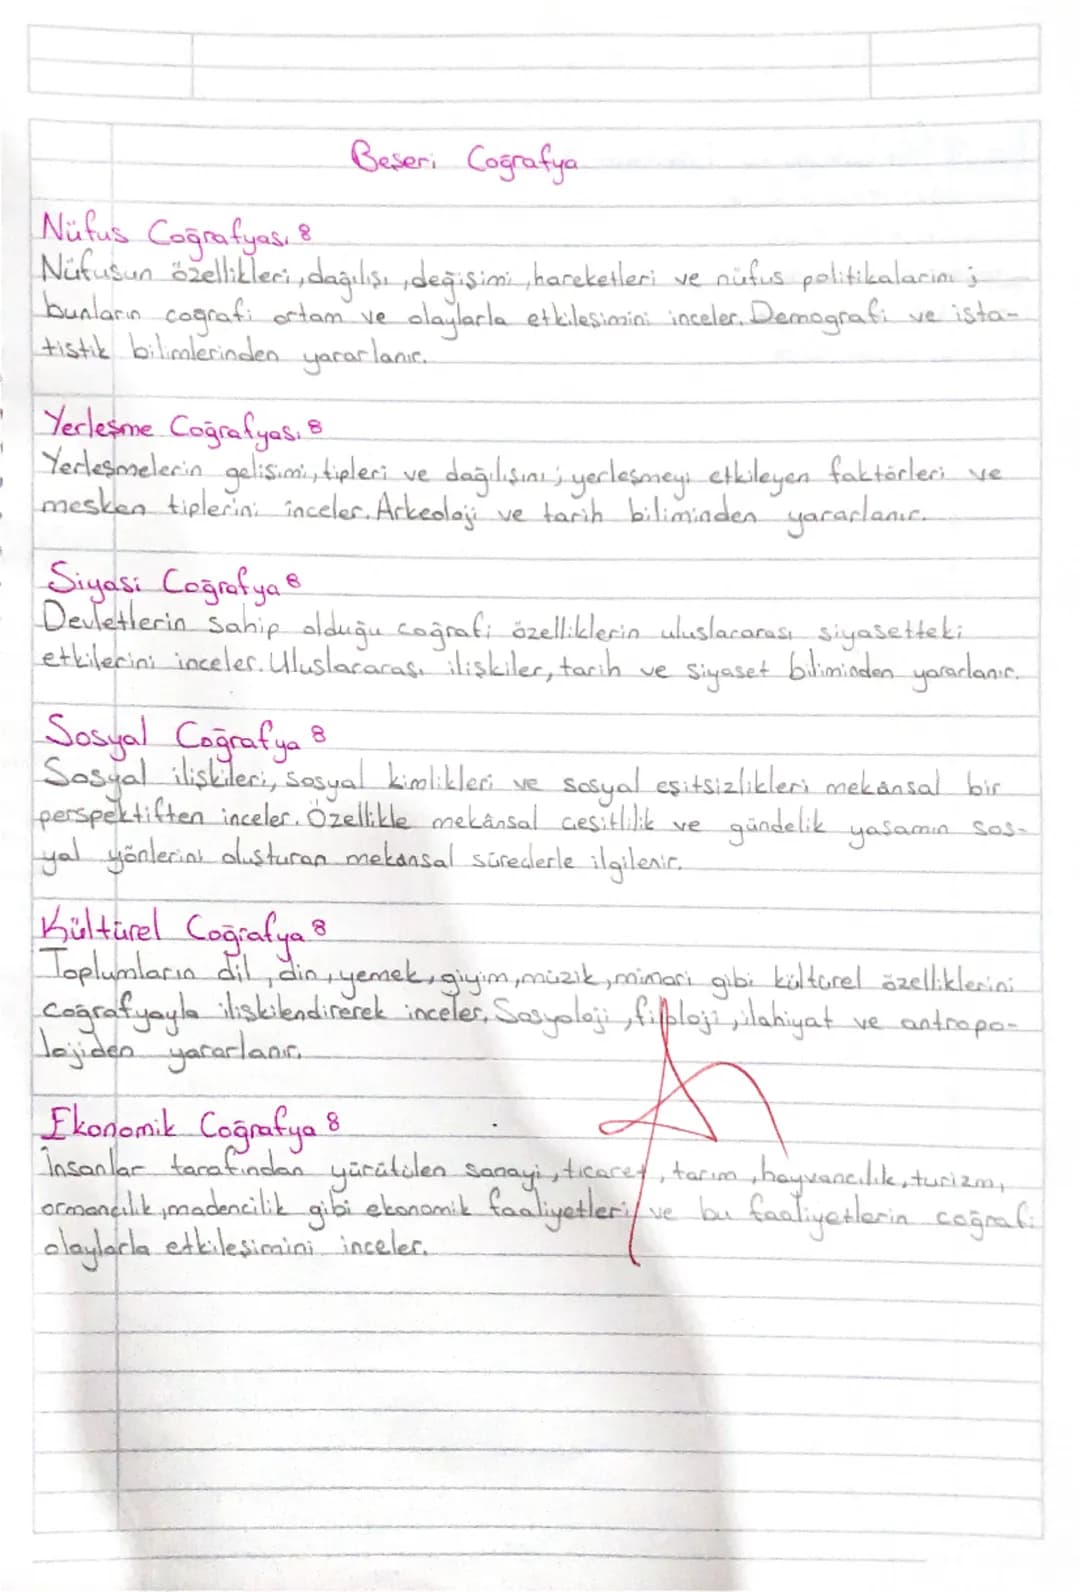 Beşeri Coğrafya
Nüfus Coğrafyası:
Nüfusun özellikleri, dağılışı, değişimi, hareketleri ve nüfus politikalarını;
bunların coğrafi ortam ve olaylarla etkileşimini inceler. Demografi ve ista-
tistik bilimlerinden yararlanır.
Yerleşme Coğrafyası:
Yerleşmelerin gelişimi, tipleri ve dağılışını; yerleşmeyi etkileyen faktörleri ve
mesken tiplerini inceler. Arkeoloji ve tarih biliminden yararlanır.
Siyasi Coğrafya:
Devletlerin sahip olduğu coğrafi özelliklerin uluslararası siyasetteki
etkilerini inceler. Uluslararası ilişkiler, tarih ve siyaset biliminden yararlanır.
Sosyal Coğrafya:
Sosyal ilişkileri, sosyal kimlikleri ve sosyal eşitsizlikleri mekânsal bir
perspektiften inceler. Özellikle mekânsal çeşitlilik ve gündelik yaşamın sos-
yal yönlerini oluşturan mekansal süreçlerle ilgilenir.
Kültürel Coğrafya:
Toplumların dil, din, yemek, giyim, müzik, mimari gibi kültürel özelliklerini
coğrafyayla ilişkilendirerek inceler. Sosyoloji, filoloji, ilahiyat ve antropo-
lojiden yararlanır.
Ekonomik Coğrafya:
İnsanlar tarafından yürütülen sanayi, ticaret, tarım, hayvancılık, turizm,
ormancılık, madencilik gibi ekonomik faaliyetleri ve bu faaliyetlerin coğrafi
olaylarla etkileşimini inceler.